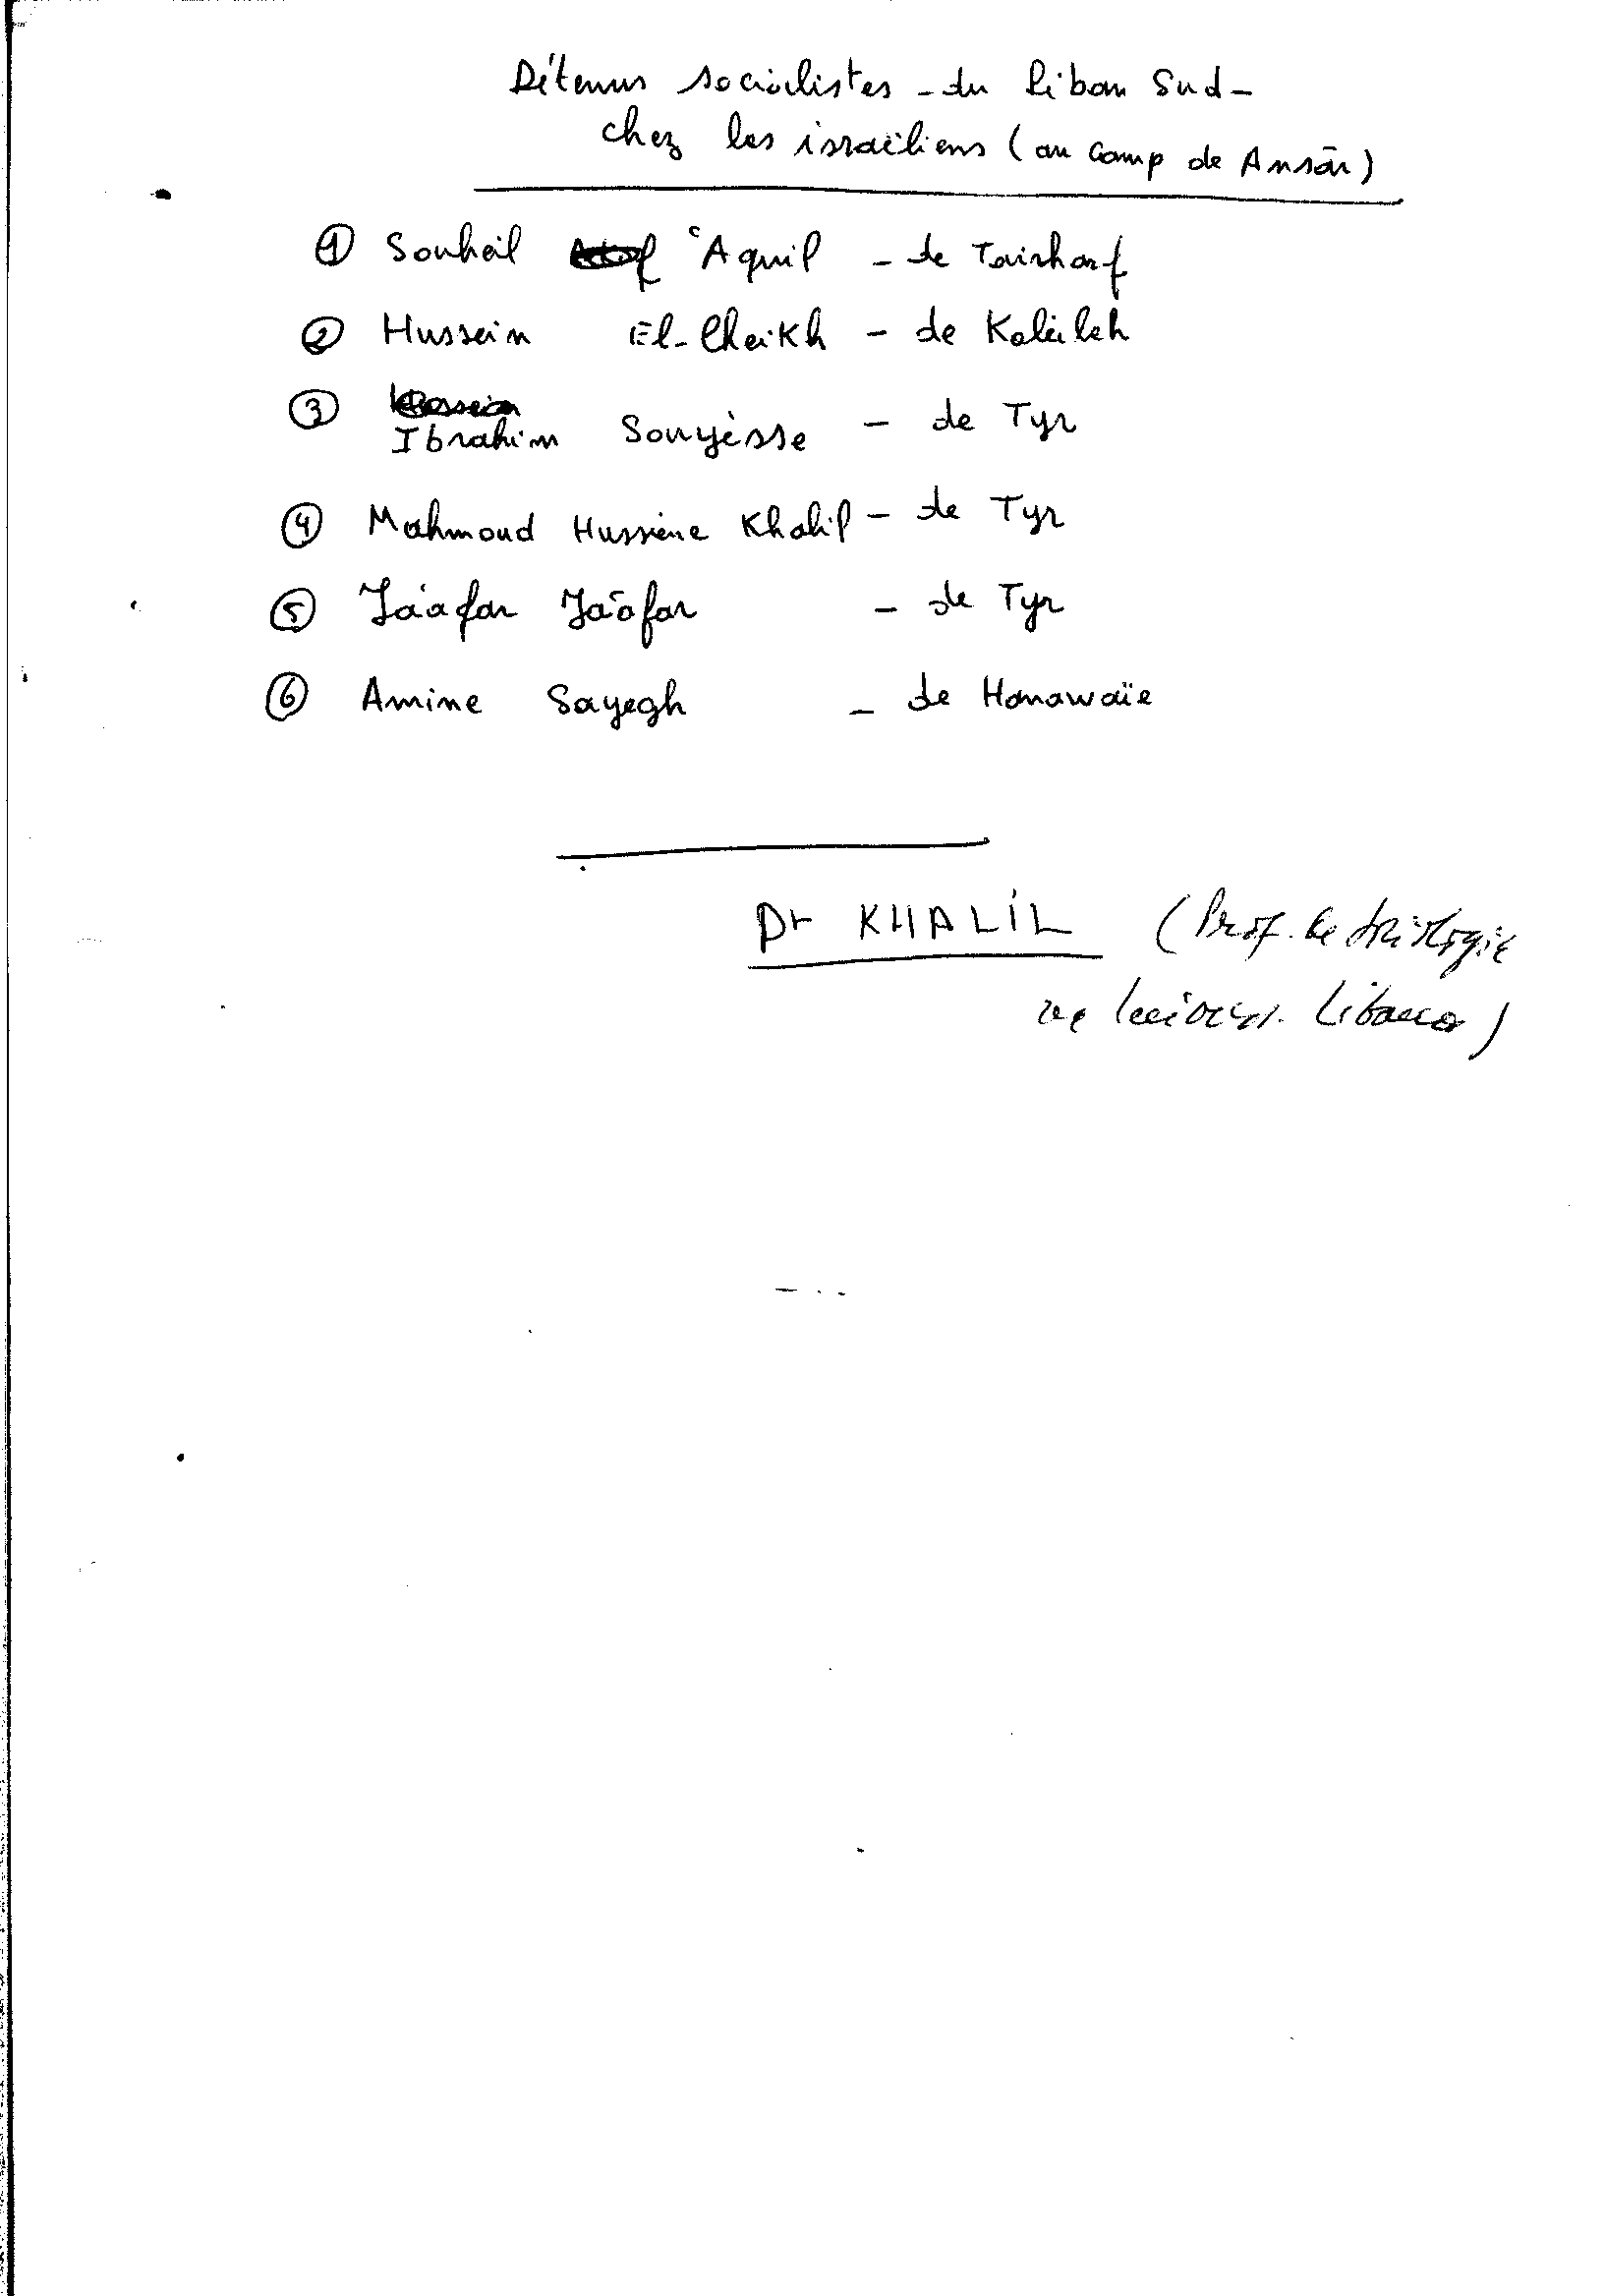 Détenus socialistes - du Liban Sud -
chez les israëliens (au Camp de Ansār)
① Souheil ʿAquil - de Tairharf
② Hussein El-Cheikh - de Kaleileh
③ Ibrahim Souyèsse - de Tyr
④ Mahmoud Hussiene Khalil - de Tyr
⑤ Jáafar Jáafar - de Tyr
⑥ Amine Sayegh - de Hanawaïe
Dr KHALIL (Prof. de
Libano)